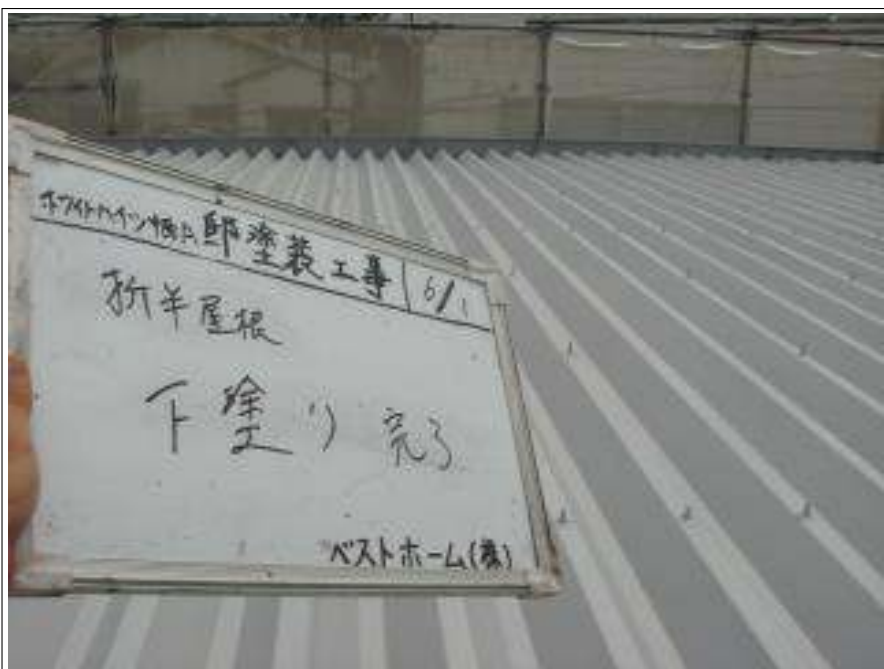 ホワイトハイツ 邸塗装工事 6/1
折半屋根
下塗り 完了
ベストホーム(株)